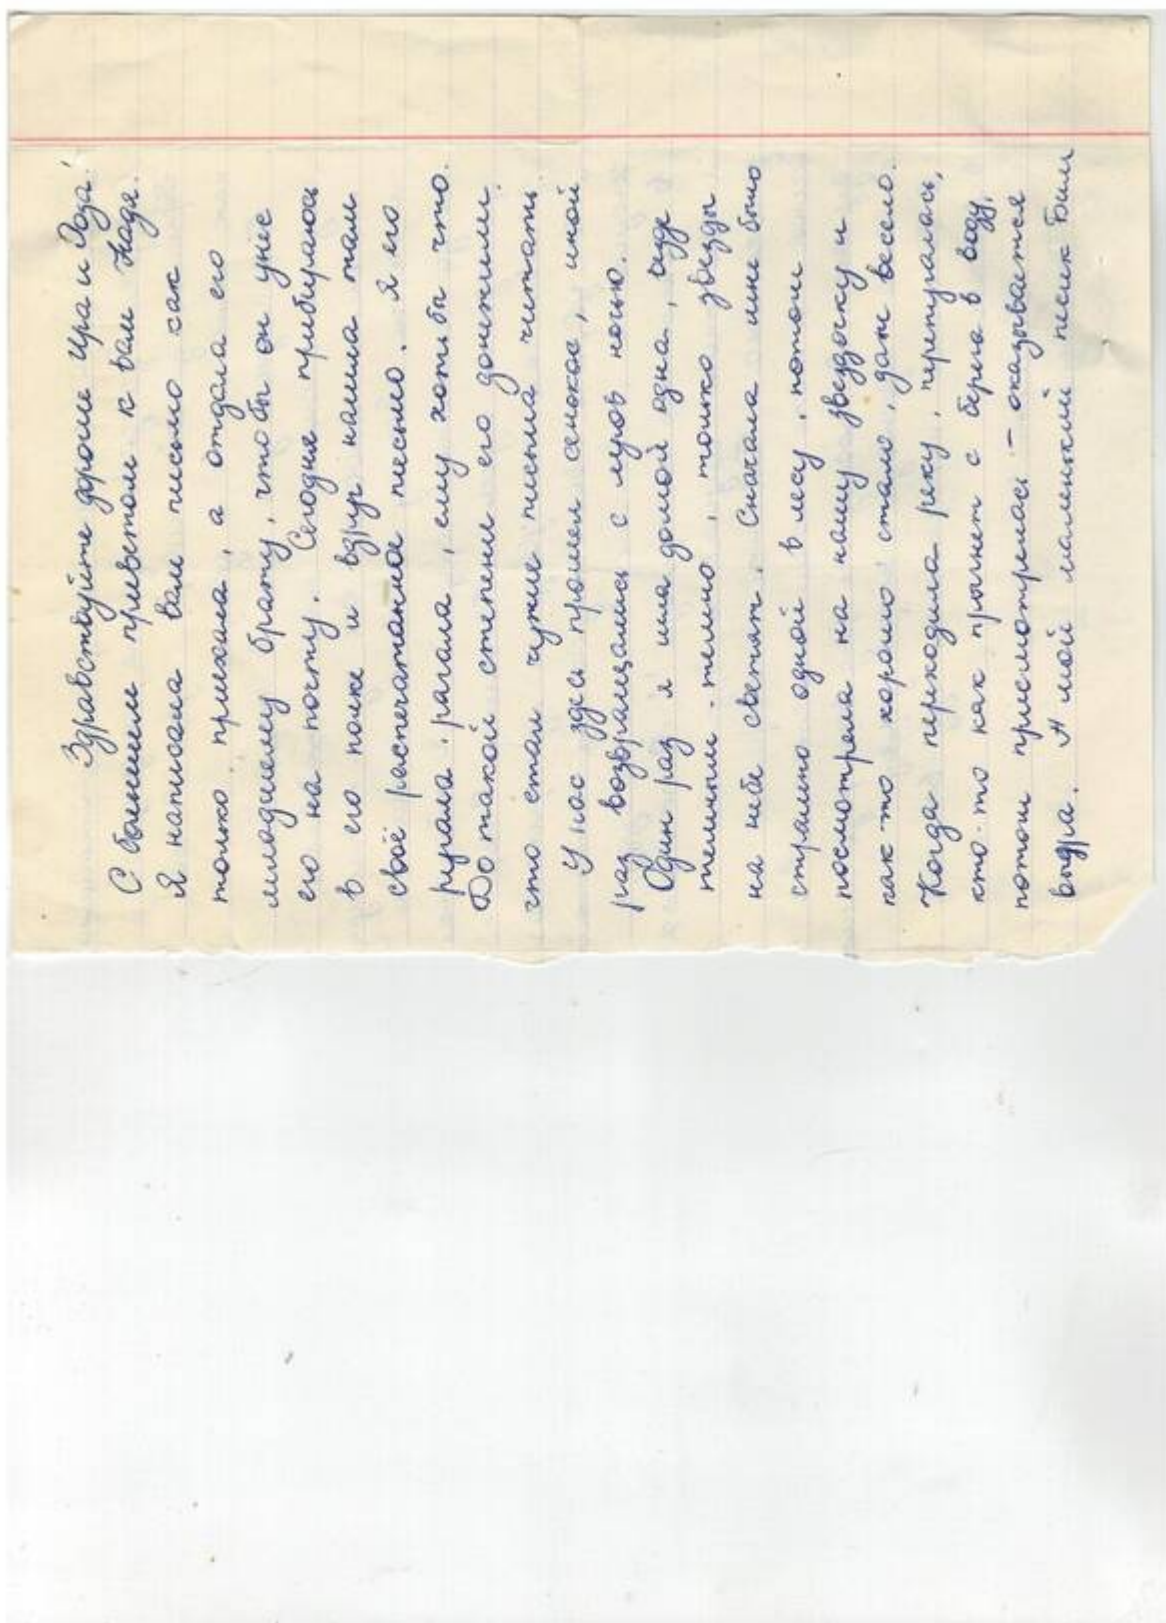 Здравствуйте дорогие Ира и Роза!
С большим приветом к вам Надя.
Я написала вам письмо как
только приехала, а отдала его
младшему брату, чтобы он унёс
его на почту. Сегодня прибиралась
в его полке и вдруг нашла там
своё распечатанное письмо. Я его
ругала-ругала, ему хоть бы что.
До такой степени его донежили,
что стал чужие письма читать.
У нас здесь прошел сенокос, иной
раз возвращались с лугов ночью.
Один раз я шла домой одна, везде
темным-темно, только звезды
на небе светят. Сначала мне было
страшно одной в лесу, потом
посмотрела на нашу звездочку и
как-то хорошо стало, даже весело.
Когда переходила реку, перепугалась,
кто-то как прыгнет с берега в воду,
потом присмотрелась – оказывается
выдра. А мой маленький песик Билли